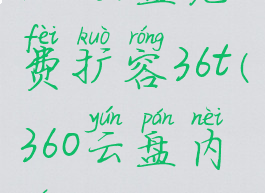 fèi kuò róng
费扩容36t(
yún pán nèi
360云盘内